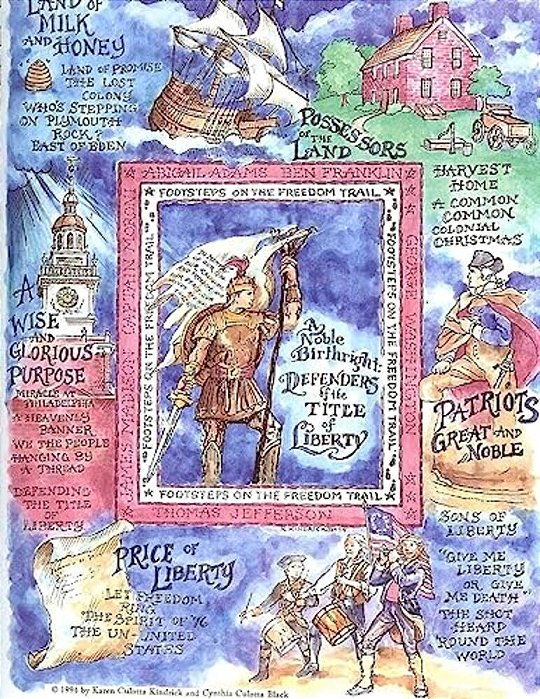 LAND OF
MILK
AND HONEY
LAND OF PROMISE
THE LOST
COLONY
WHO'S STEPPING
ON PLYMOUTH
ROCK?
EAST OF EDEN
POSSESSORS
OF THE
LAND
HARVEST
HOME
A COMMON
COMMON
COLONIAL
CHRISTMAS
ABIGAIL ADAMS BEN FRANKLIN
JAMES MADISON CAPTAIN MORONI
GEORGE WASHINGTON
THOMAS JEFFERSON
FOOTSTEPS ON THE FREEDOM TRAIL
FOOTSTEPS ON THE FREEDOM TRAIL
FOOTSTEPS ON THE FREEDOM TRAIL
FOOTSTEPS ON THE FREEDOM TRAIL
A
Noble
Birthright:
DEFENDERS
of the
TITLE
of
LIBERTY
A
WISE
AND
GLORIOUS
PURPOSE
MIRACLE AT
PHILADELPHIA
A HEAVENLY
BANNER
WE THE PEOPLE
HANGING BY
A THREAD
DEFENDING
THE TITLE
OF
LIBERTY
PATRIOTS
GREAT AND
NOBLE
SONS OF
LIBERTY
"GIVE ME
LIBERTY
OR GIVE
ME DEATH"
THE SHOT
HEARD
'ROUND THE
WORLD
PRICE OF
LIBERTY
LET FREEDOM
RING
THE SPIRIT OF '76
THE UN-UNITED
STATES
© 1994 by Karen Culotta Kindrick and Cynthia Culotta Black